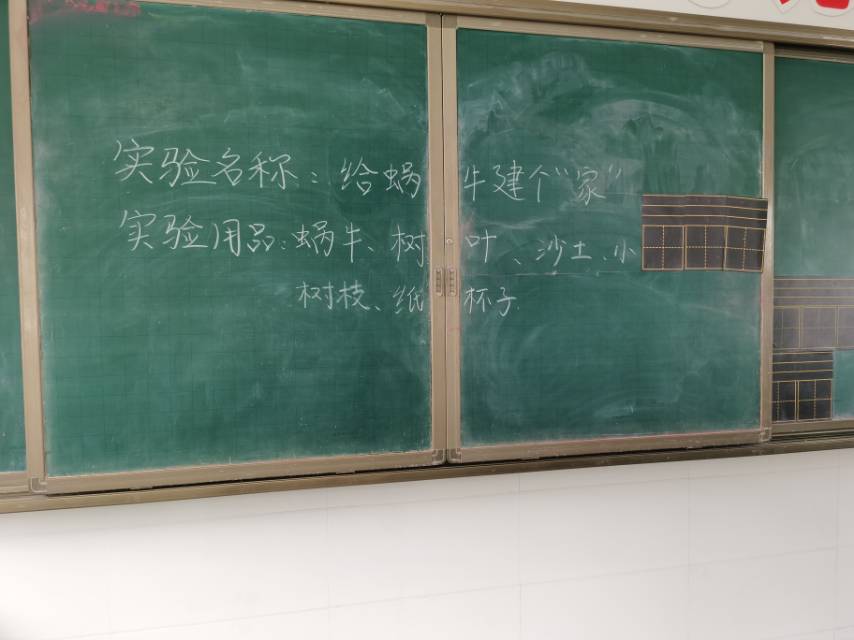 实验名称：给蜗牛建个“家”
实验用品：蜗牛、树叶、沙土、小
树枝、纸杯子